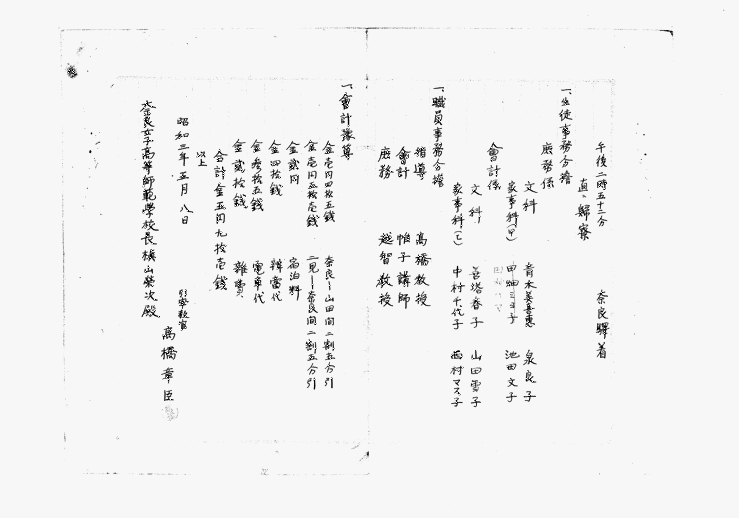 午後二時五十二分　奈良驛着
直ニ歸寮
一、生徒事務分擔
庶務係
文科　青木美喜惠　泉良子
家事科(甲)　田畑ミヨ子　池田文子
會計係
文科　善塔春子　山田雪子
家事科(乙)　中村千代子　西村マス子
一、職員事務分擔
指導　高橋教授
會計　帷子講師
庶務　越智教授
一、會計豫算
金壱円四拾五錢　奈良——山田間二割五分引
金壱円五拾壱錢　二見——奈良間二割五分引
金貳円　宿泊料
金四拾錢　辨當代
金参拾五錢　電車代
金貳拾錢　雜費
合計金五円九拾壱錢
以上
昭和三年五月八日
引率教官　高橋章臣
奈良女子高等師範學校長槇山榮次殿